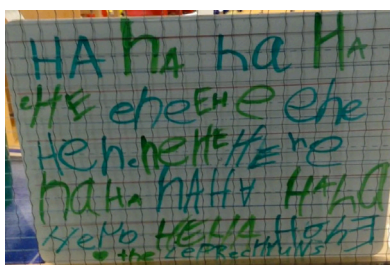 HA hA ha HA
eHE eheEHe ehe
Heh.heHEHEhe
haHa hAHA HALa
♥ the LePRecHAUNS